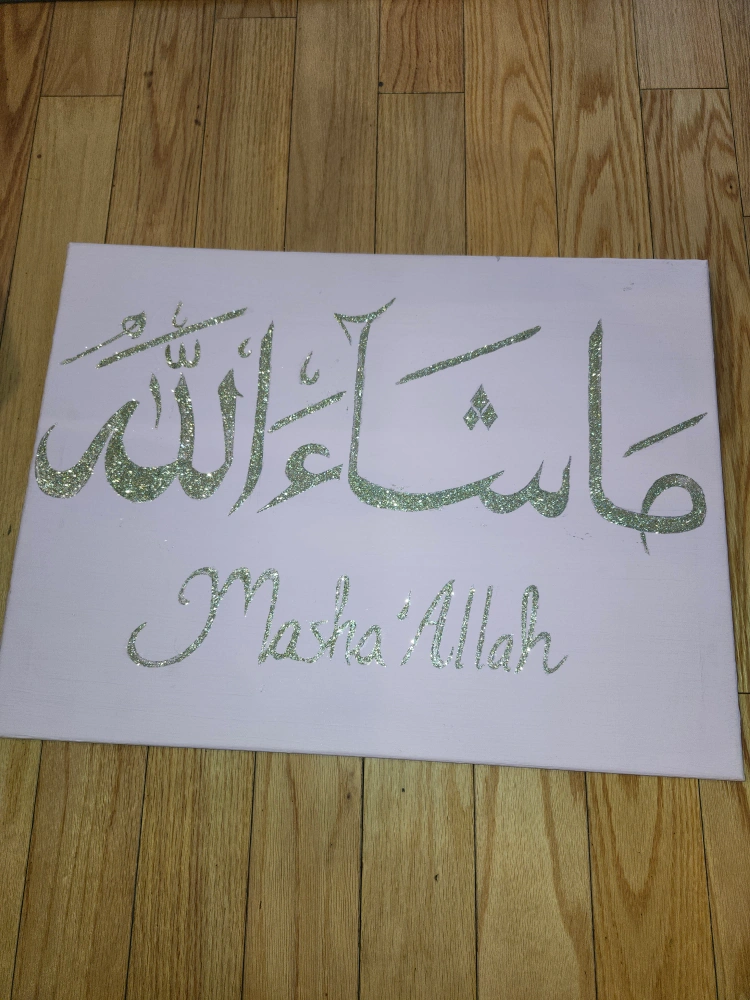 مَا شَآءَ اللّٰهُ
Masha 'Allah